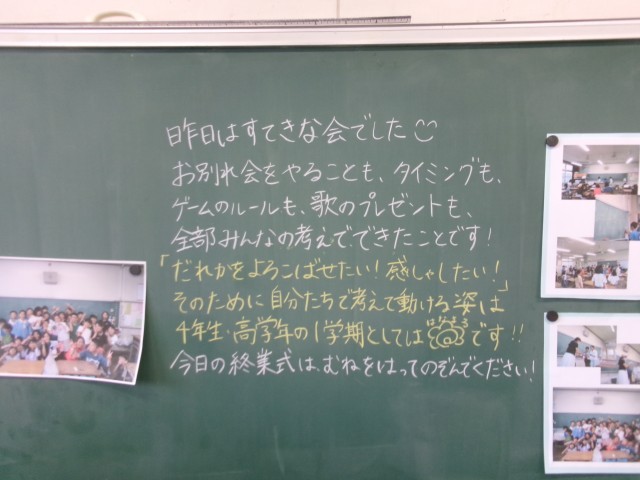 昨日はすてきな会でした
お別れ会をやることも、タイミングも、
ゲームのルールも、歌のプレゼントも、
全部みんなの考えでできたことです!
「だれかをよろこばせたい!感しゃしたい!」
そのために自分たちで考えて動ける姿は
4年生・高学年の1学期としては はなまる です!!
今日の終業式は、むねをはってのぞんでください!